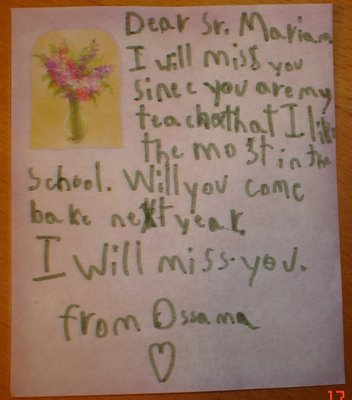 Dear Sr. Mariam
I will miss you
sinec you are my
teacher that I like
the most in the
school. Will you come
bake next year.
I will miss you.
from Ossama
17